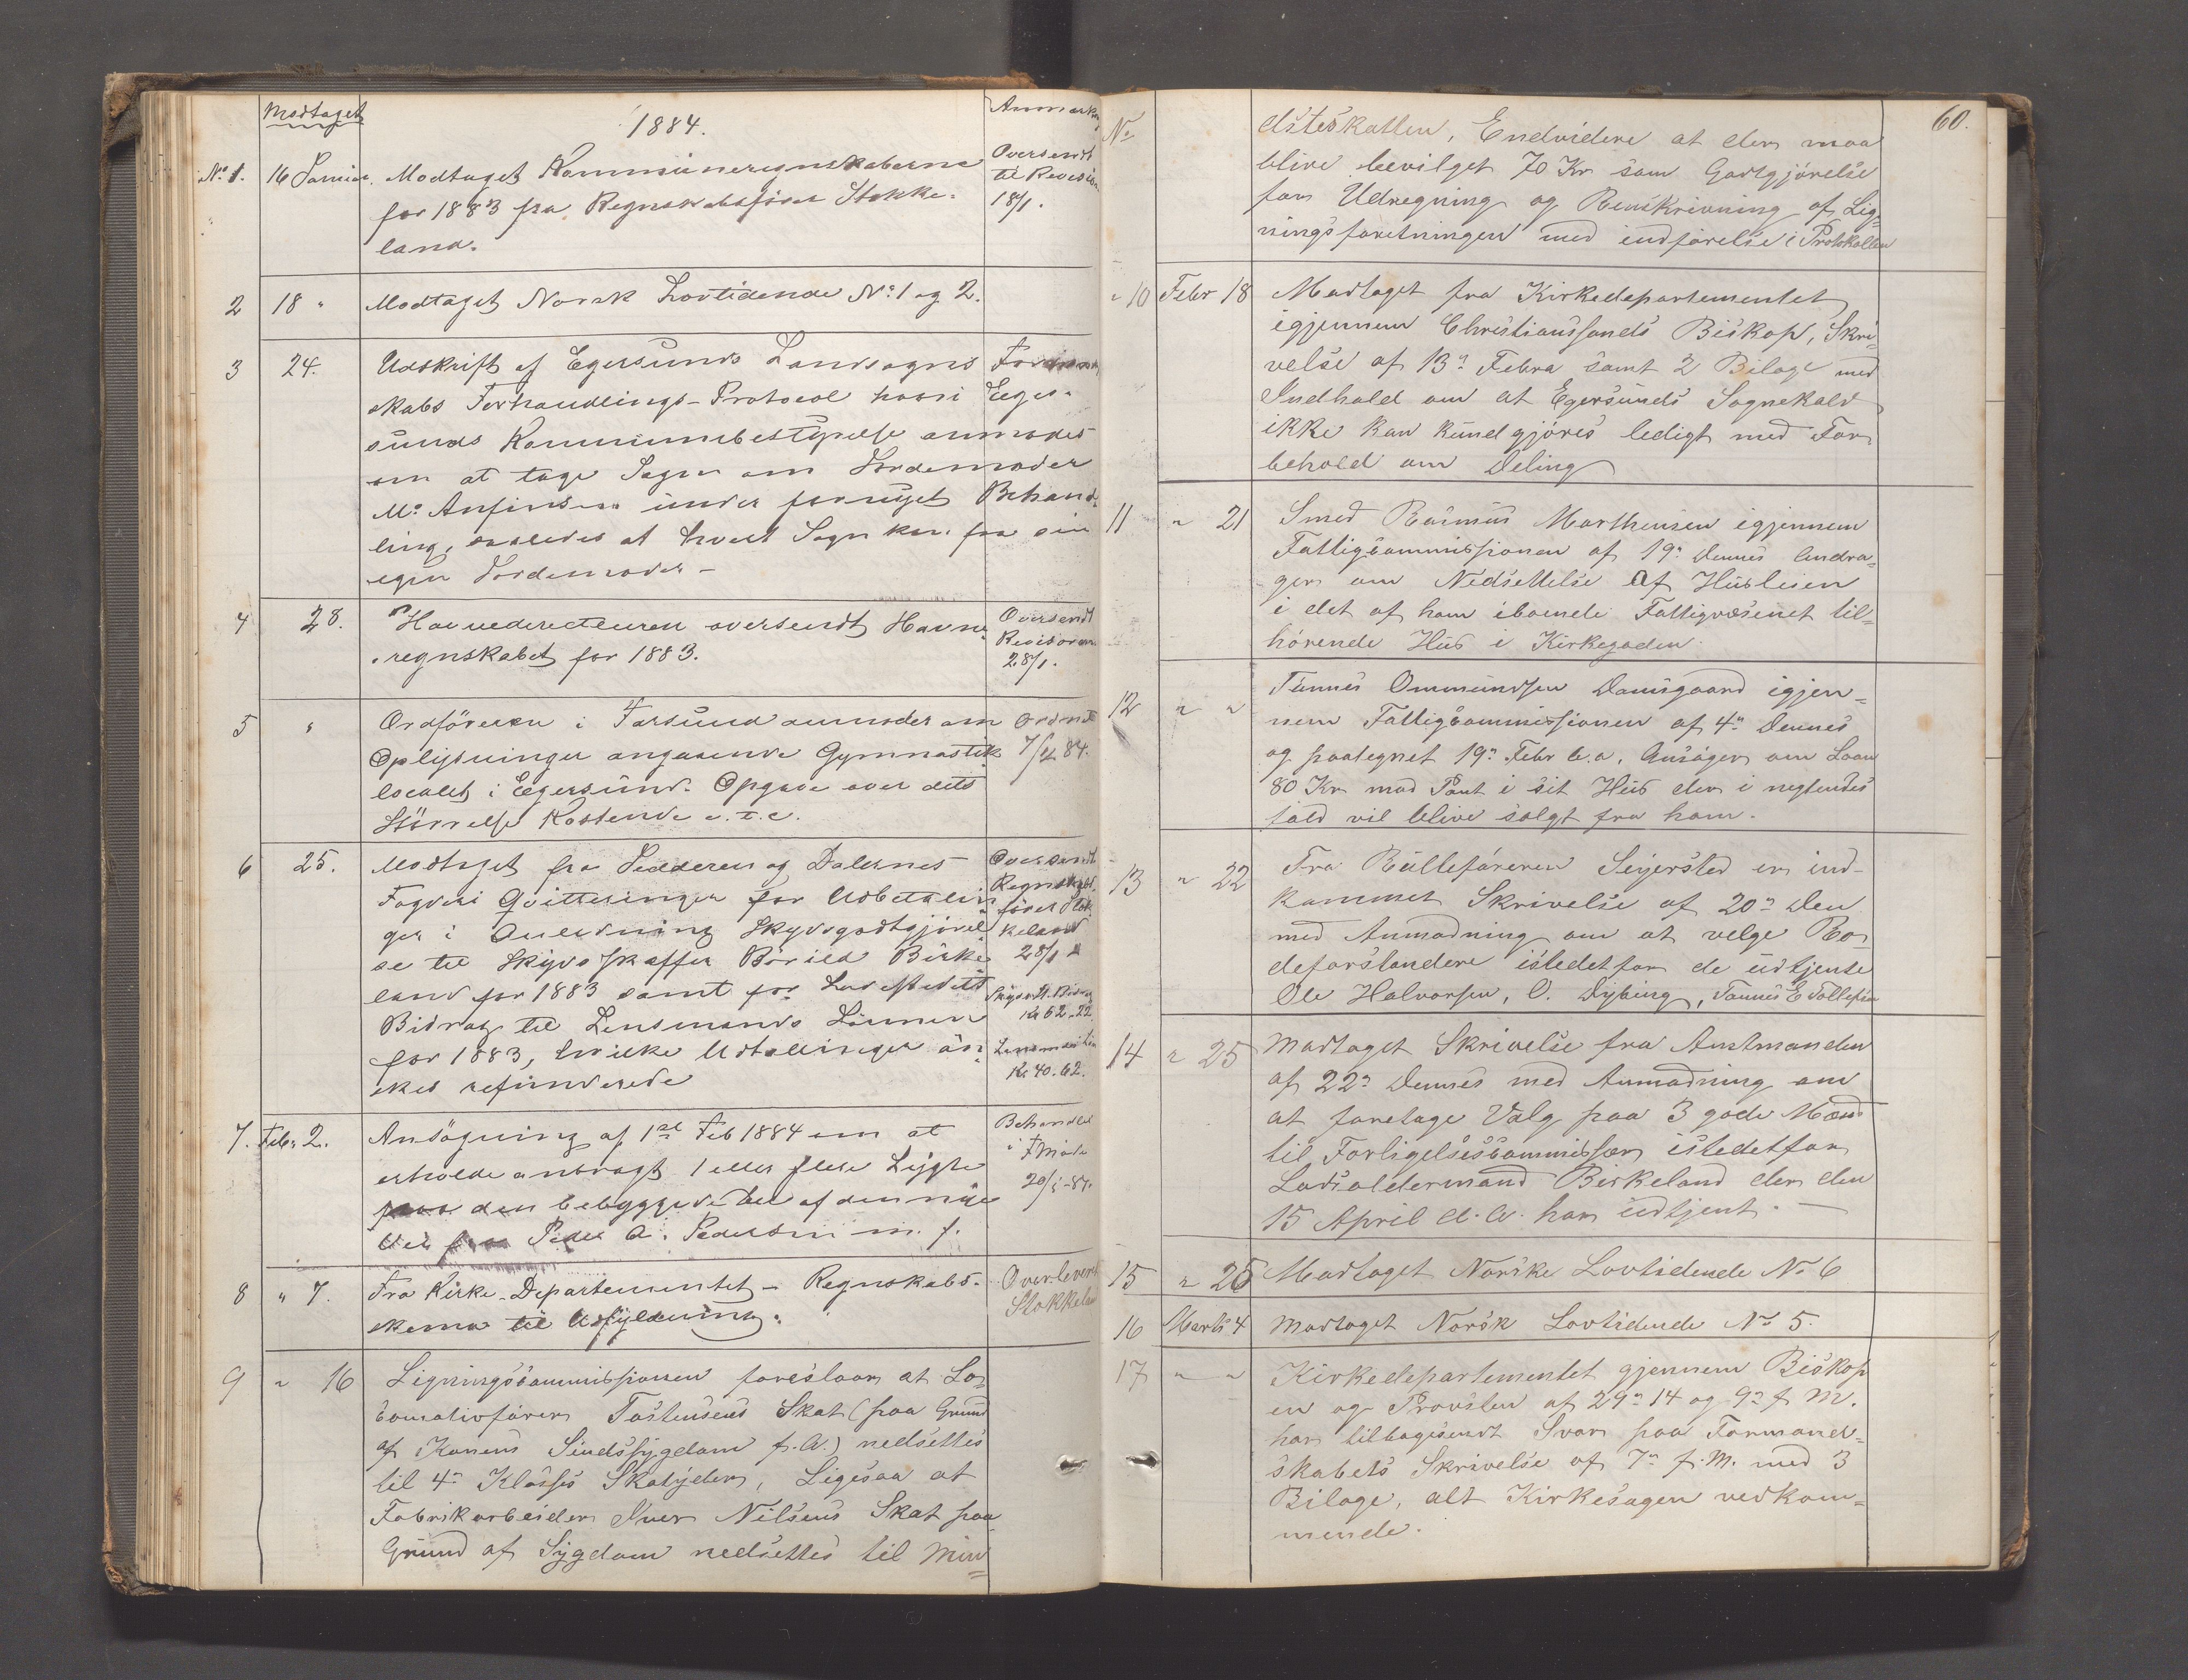 Modtaget
1884.
No 1. 16 Januar. Modtaget Kommuneregnskaberne
for 1883 fra Regnskabsfører Stokke-
land.
Oversendt
til Revision
18/1.
2 18 " Modtaget Norsk Lovtidende No 1 og 2.
3 24. Udskrift af Egersunds Landsogns Formand
skabs Forhandlings-Protocol hvori Eger-
sunds Kommunebestyrelse anmodes
om at tage Sagen om Jordemoder
M. Anfinsen under fornyet Behand-
ling, saaledes at hvert Sogn kan faa sin
egen Jordemoder -
4 28. Havnedirecteuren oversendt Havne-
regnskabet for 1883.
Oversendt
Revisoren
28/1.
5 " Ordføreren i Farsund anmoder om
Oplysninger angaaende Gymnastik
localet i Egersund. Opgave over dets
Størrelse Kostende e.t.c.
6 25. Modtaget fra Jædderen og Dalernes
Fogderi Qvitteringer for Udbetalin-
ger i Anledning Skydsgodtgjørel-
se til Skydsskaffer Børild Birke-
land for 1883 samt for Ladestedets
Bidrag til Lensmands Lønnen
for 1883, hvilke Udtællinger øn-
skes refunderede
Oversendt
Regnskabs-
fører Stok-
keland
28/1
Kr 62.22
Kr 40.62.
7. Febr 2. Ansøgning af 1ste Feb 1884 om at
erholde anbragt 1 eller flere Lygte
paa den bebyggede Del af den nye
Vei fra Peder A. Pedersen m. f.
Behandlet
i FMøde
8 " 7. Fra Kirke-Departementet - Regnskabs-
skema til Udfyldning.
Overleveret
Stokkeland
9 " 16 Ligningscommissionen foreslaar at Lo-
comotivfører Tostensens Skat (paa Grund
af Konens Sindssygdom f. A.) nedsettes
til 4de Klasses Skatyder, Ligesaa at
Fabrikarbeider Iver Nilsens Skat paa
Grund af Sygdom nedsettes til Min-
No
60.
dsteskatten, Endvidere at der maa
blive bevilget 70 Kr som Godtgjørelse
for Udregning og Renskrivning af Lig-
ningsforretningen med indførelse i Protokollen
" 10 Febr 18 Modtaget fra Kirkedepartementet
igjennem Christianssands Biskop, Skri-
velse af 13de Febra samt 2 Bilage med
Indhold om at Egersunds Sognekald
ikke kan kundgjøres ledigt med For-
behold om Deling
11 " 21 Smed Rasmus Marthensen igjennem
Fattigcommissionen af 19de Dennes andra-
ger om Nedsettelse af Husleien
i det af ham iboende Fattigvæsenet til-
hørende Hus i Kirkegaden.
12 " " Tønnes Ommundsen Damsgaard igjen-
nem Fattigcommissionen af 4de Dennes
og paategnet 19de Febr d.a. Ansøger om Laan
80 Kr mod Pant i sit Hus der i negtendes
fald vil blive solgt fra ham.
13 " 22 Fra Rulleføreren Seyersted er ind-
kommet Skrivelse af 20de Den
med Anmodning om at velge Ro-
deforstandere istedetfor de udtjente
Ole Halvorsen, O. Dybing, Tønnes E Tollefsen
14 " 25 Modtaget Skrivelse fra Amtmanden
af 22de Dennes med Anmodning om
at foretage Valg paa 3 gode Mænd
til Forligelsescommissær istedetfor
Lodsoldermand Birkeland der den
15 April d. A. har udtjent. —
15 " 25 Modtaget Norske Lovtidende No 6
16 Marts 4 Modtaget Norsk Lovtidende No 5.
17 " " Kirkedepartementet gjennem Biskop
en og Provsten af 29de 14 og 9de f. M.
har tilbagesendt Svar paa Formand-
skabets Skrivelse af 7de f. M. med 3
Bilage, alt Kirkesagen vedkom-
mende.